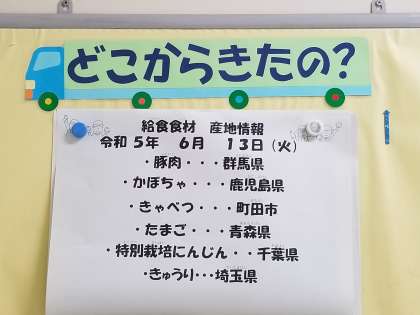 どこからきたの?
給食食材 産地情報
令和 5年 6月 13日(火)
・豚肉・・・群馬県
・かぼちゃ・・・鹿児島県
・きゃべつ・・・町田市
・たまご・・・青森県
・特別栽培にんじん・・千葉県
・きゅうり・・・埼玉県